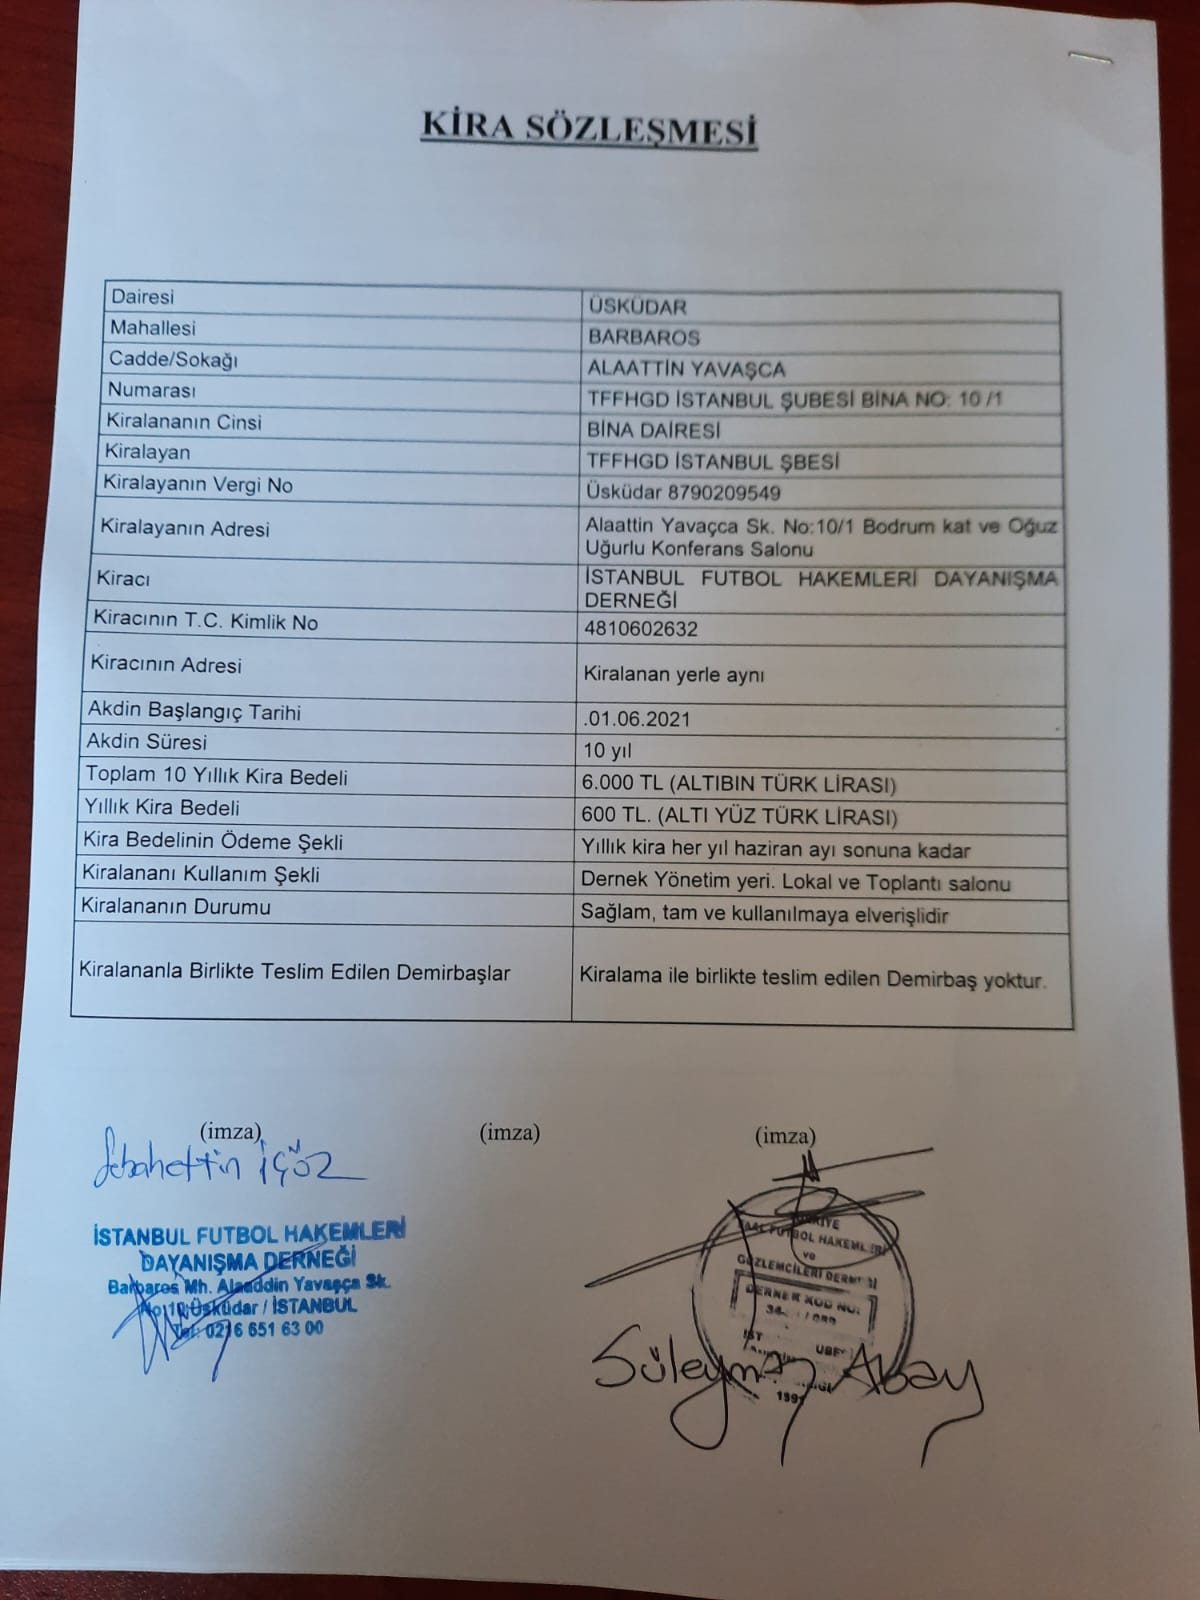 KİRA SÖZLEŞMESİ
Dairesi ÜSKÜDAR
Mahallesi BARBAROS
Cadde/Sokağı ALAATTİN YAVAŞCA
Numarası TFFHGD İSTANBUL ŞUBESİ BİNA NO: 10 /1
Kiralananın Cinsi BİNA DAİRESİ
Kiralayan TFFHGD İSTANBUL ŞBESİ
Kiralayanın Vergi No Üsküdar 8790209549
Kiralayanın Adresi Alaattin Yavaçca Sk. No:10/1 Bodrum kat ve Oğuz
Uğurlu Konferans Salonu
Kiracı İSTANBUL FUTBOL HAKEMLERİ DAYANIŞMA
DERNEĞİ
Kiracının T.C. Kimlik No 4810602632
Kiracının Adresi Kiralanan yerle aynı
Akdin Başlangıç Tarihi .01.06.2021
Akdin Süresi 10 yıl
Toplam 10 Yıllık Kira Bedeli 6.000 TL (ALTIBIN TÜRK LİRASI)
Yıllık Kira Bedeli 600 TL. (ALTI YÜZ TÜRK LİRASI)
Kira Bedelinin Ödeme Şekli Yıllık kira her yıl haziran ayı sonuna kadar
Kiralananı Kullanım Şekli Dernek Yönetim yeri. Lokal ve Toplantı salonu
Kiralananın Durumu Sağlam, tam ve kullanılmaya elverişlidir
Kiralananla Birlikte Teslim Edilen Demirbaşlar Kiralama ile birlikte teslim edilen Demirbaş yoktur.
(imza) (imza) (imza)
Sebahettin İÇÖZ
İSTANBUL FUTBOL HAKEMLERİ
DAYANIŞMA DERNEĞİ
Barbaros Mh. Alaaddin Yavaşça Sk.
No:10 Üsküdar / İSTANBUL
Tel: 0216 651 63 00
FUTBOL HAKEMLERİ
ve
GÖZLEMCİLERİ DERNEĞİ
DERNEK KOD NO:
Süleyman Abay